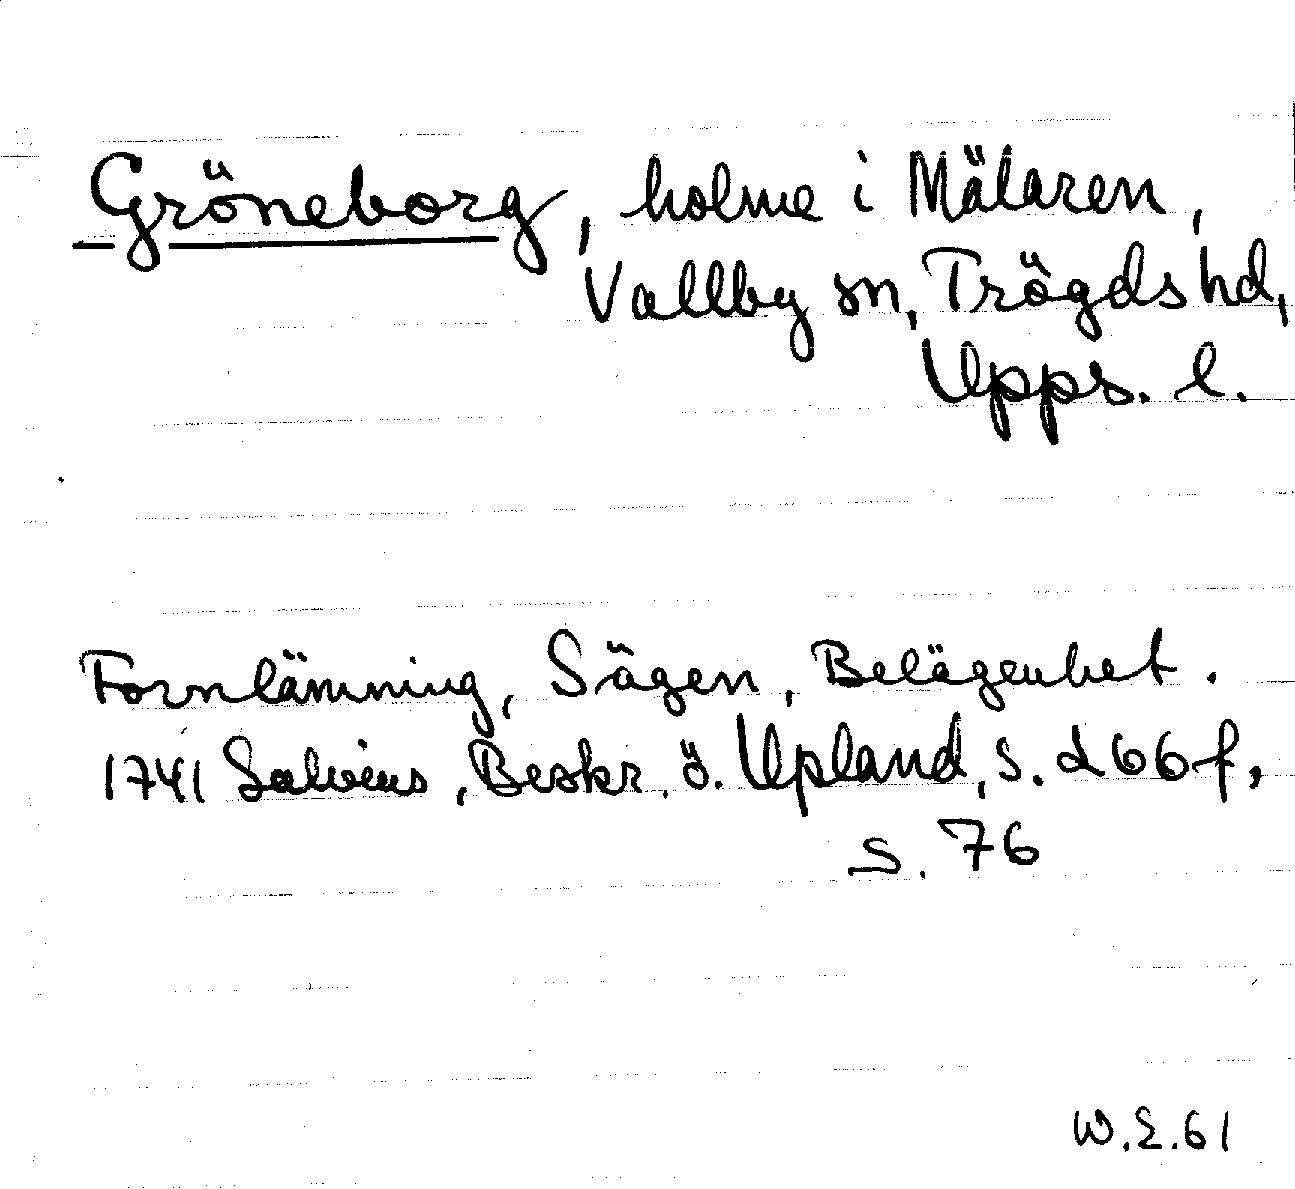 Gröneborg, holme i Mälaren,
Vallby sn, Trögds hd,
Upps. l.
Fornlämning, Sägen, Belägenhet.
1741 Salvius, Beskr. ö. Upland, s. 266 f,
s. 76
W.E.61